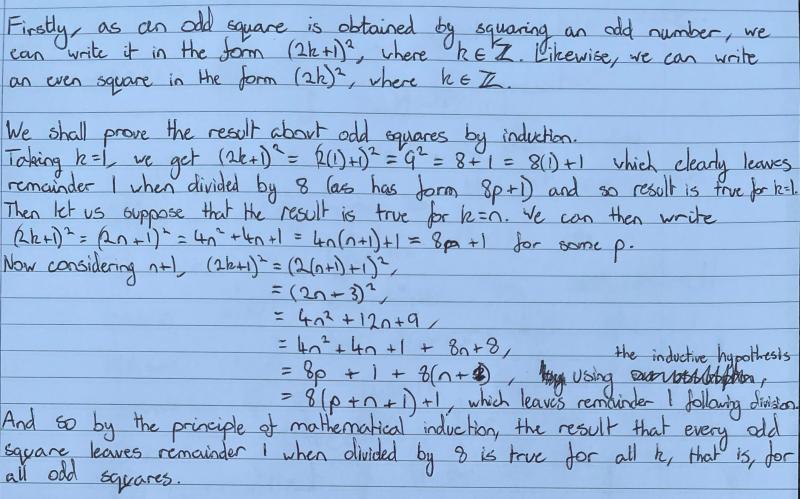 Firstly, as an odd square is obtained by squaring an odd number, we
can write it in the form (2k+1)², where k ∈ ℤ. Likewise, we can write
an even square in the form (2k)², where k ∈ ℤ.
We shall prove the result about odd squares by induction.
Taking k=1, we get (2k+1)² = (2(1)+1)² = 9² = 8+1 = 8(1)+1 which clearly leaves
remainder 1 when divided by 8 (as has form 8p+1) and so result is true for k=1.
Then let us suppose that the result is true for k=n. We can then write
(2k+1)² = (2n+1)² = 4n²+4n+1 = 4n(n+1)+1 = 8p+1 for some p.
Now considering n+1, (2k+1)² = (2(n+1)+1)²,
= (2n+3)²,
= 4n²+12n+9,
= 4n²+4n+1 + 8n+8,
= 8p + 1 + 8(n+1), using the inductive hypothesis,
= 8(p+n+1)+1, which leaves remainder 1 following division.
And so by the principle of mathematical induction, the result that every odd
square leaves remainder 1 when divided by 8 is true for all k, that is, for
all odd squares.